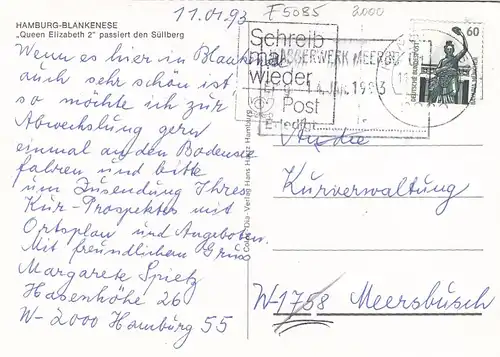 HAMBURG-BLANKENESE
„Queen Elizabeth 2" passiert den Süllberg
11.01.93
F 5085
3000
Wenn es hier in Blankenese
auch sehr schön ist
so möchte ich zur
Abwechslung gern
einmal an den Bodensee
fahren und bitte
um Zusendung Ihres
Kur-Prospektes mit
Ortsplan und Angeboten.
Mit freundlichem Gruss
Margarete Spietz
Hasenhöhe 26
W-2000 Hamburg 55
Color-Dia-Verlag Hans Hamburg
Schreib
mal
wieder
Post
WASSERWERK MEERBU
14. 1993
DEUTSCHE BUNDESPOST
60
An die
Kurverwaltung
W-1758 Meersbusch